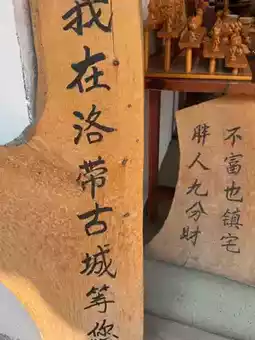 我在洛带古城等您
胖人九分财
不富也镇宅